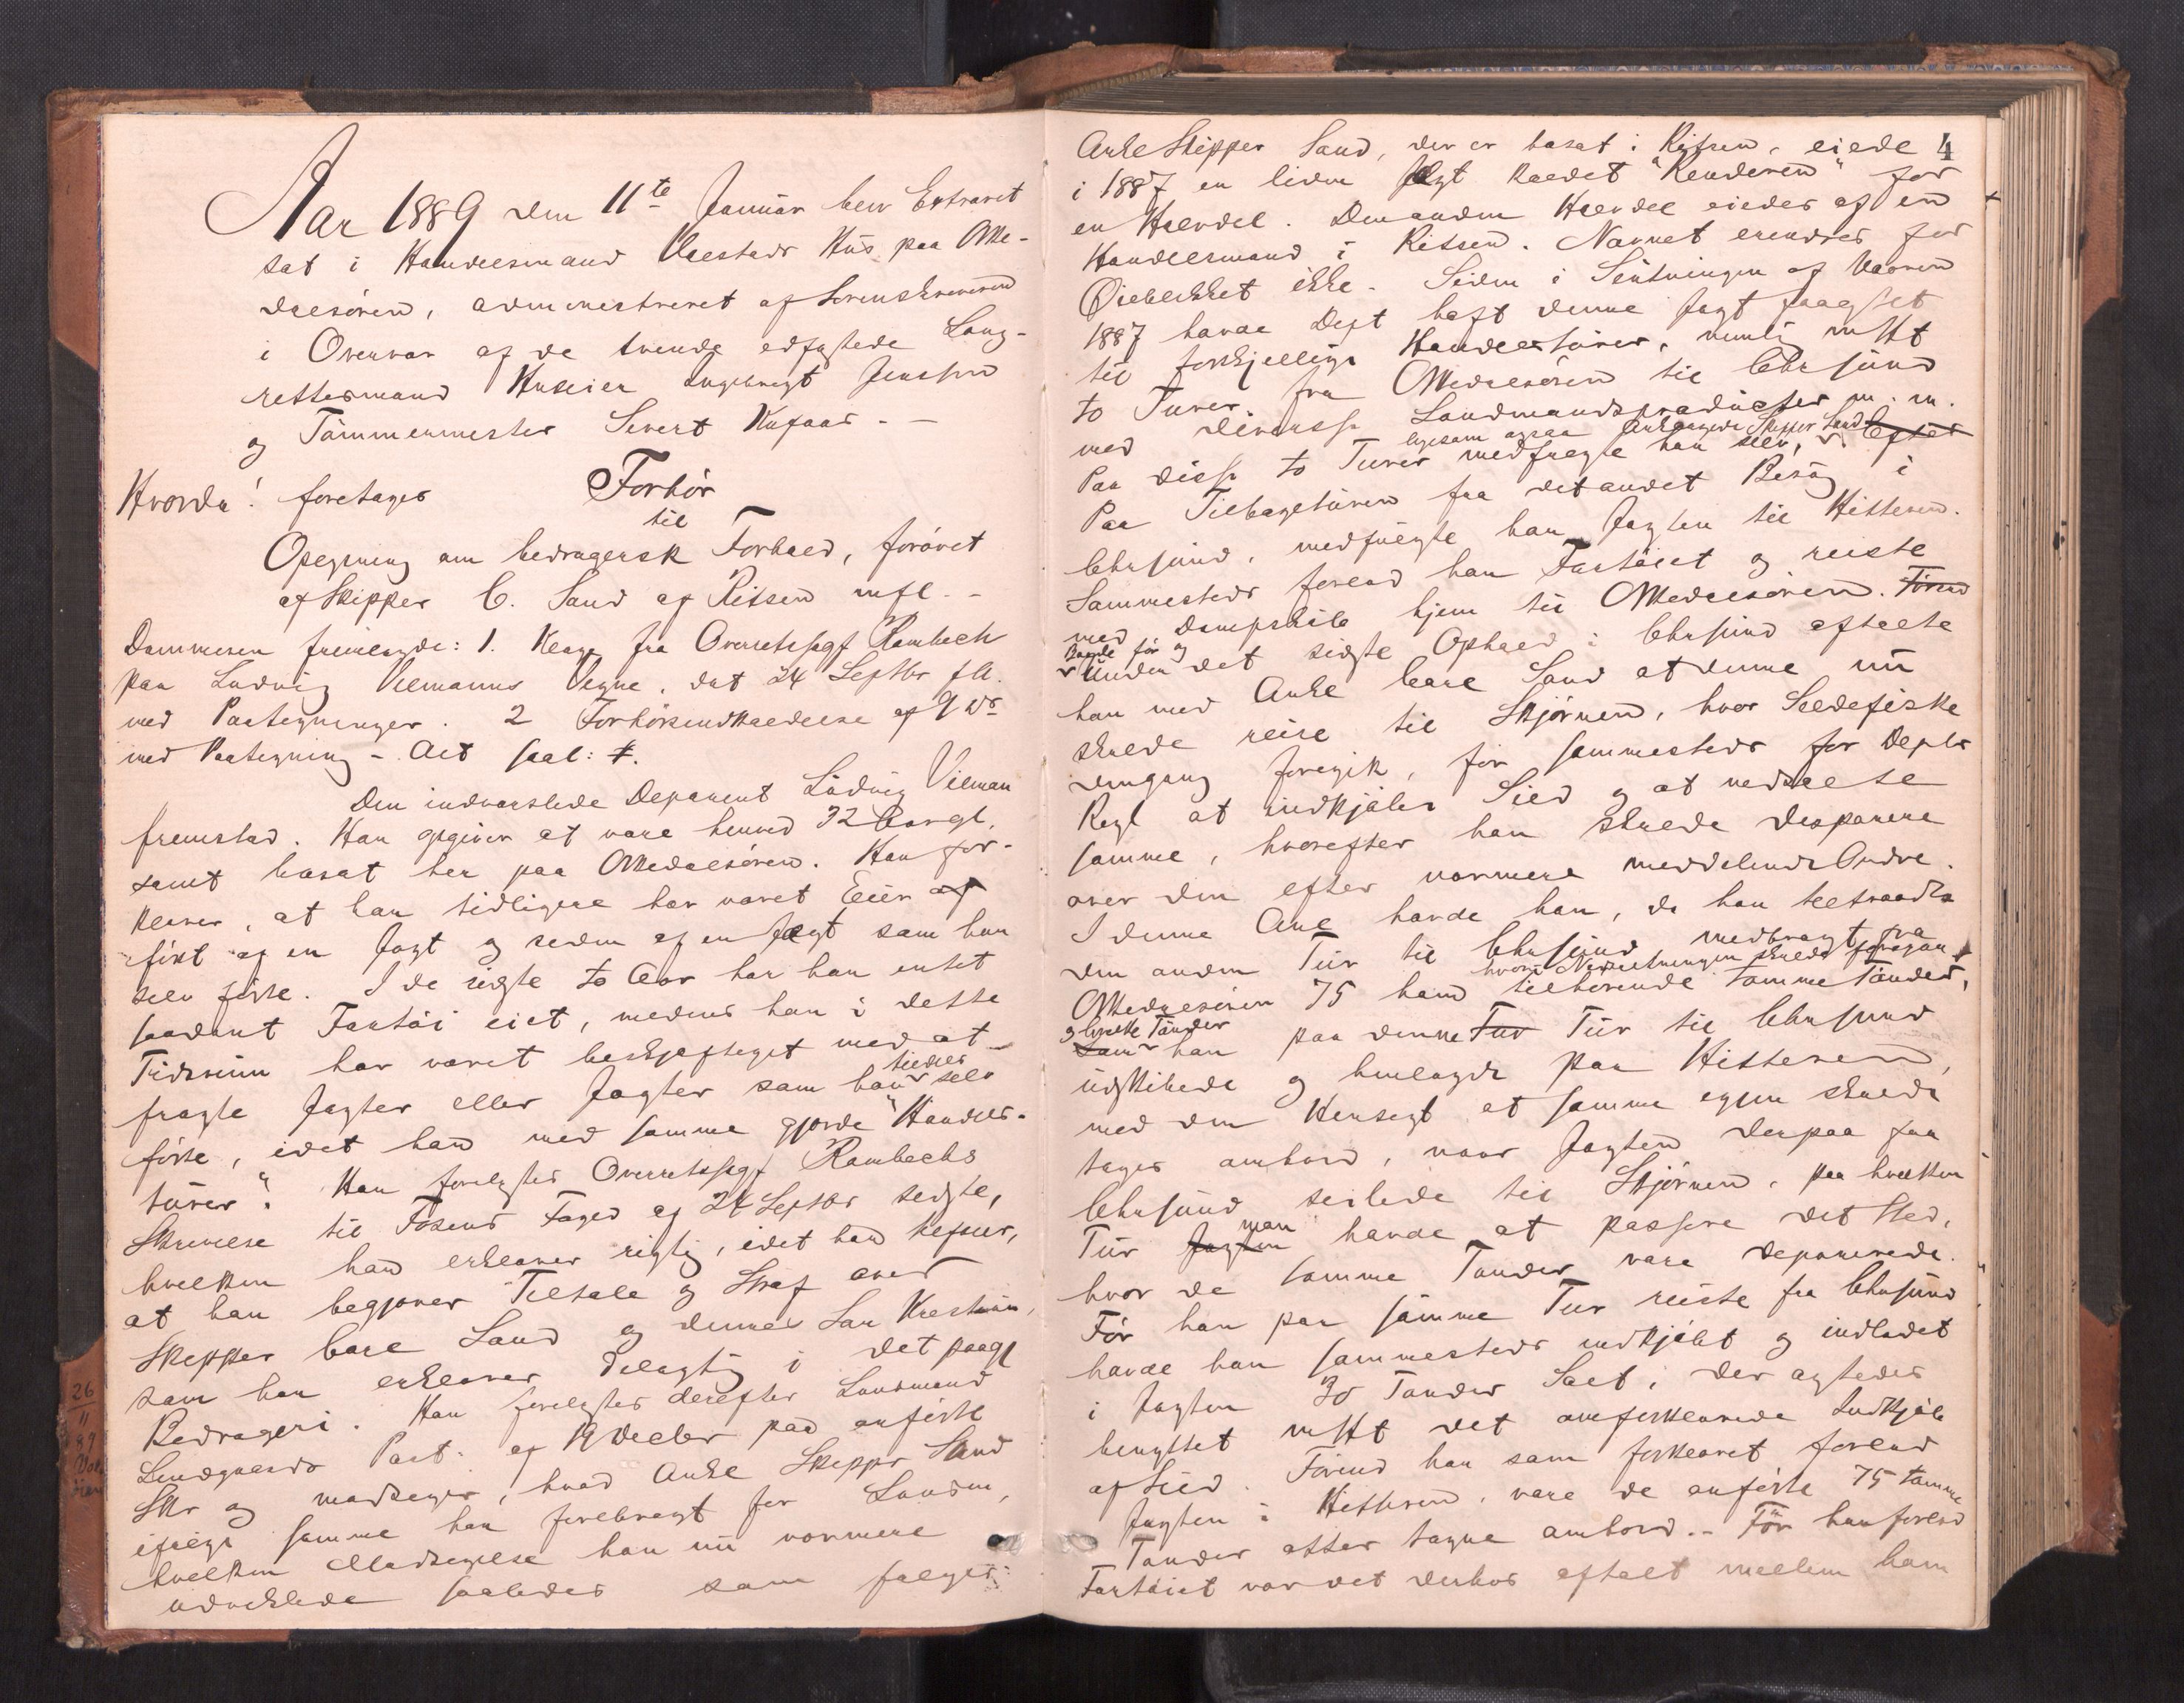 Aar 1889 den 11te Januar blev Extraret
sat i Handelsmand Hus paa Ørke-
dalsøren, administreret af Sorenskriveren
i Overvær af de tvende edfæstede Laug-
rettesmænd Huseier Ingebrigt Jenssen
og Tømmermester Sivert
Hvorda! foretages Forhør
til
Opsgning om bedragersk Forhold, forøvet
af Skipper C. Sand af Rissen mfl. -
Dommeren fremlagde: 1. Klage fra Overretssagf Rambech
paa Ludvig Vilmanns Vegne, dat 24 Septbr f.A.
med Paategninger. 2 Forhørsindkaldelse af 9 ds
med Paategning - Alt saal:
Den indvarslede Deponent Ludvig Vilman
fremstod. Han opgiver at være henved 32 Aar gl.
samt bosat her paa Ørkedalsøren. Han for-
klarer, at han tidligere har været Eier af
først af en Jagt og siden af en Jægt som han
selv førte. I de sidste to Aar har han intet
saadant Fartøi eiet, medens han i dette
Tidsrum har været beskjæftiget med at
fragte Jagter eller Jægter som han tildels selv
førte, idet han med samme gjorde "Handels-
türer". Han forelagdes Overretssagf Rambechs
Skrivelse til Fosens Foged af 24 Septbr sidste,
hvilken han erklærer rigtig, idet han tilføier,
at han begjærer Tiltale og Straf over
Skipper Carl Sand og dennes Søn Kristian,
som han erklærer delagtig i det paagj
Bedrageri. Han forelagdes derefter Lensmand
Lindgaards Paat. af 19 Decbr paa anførte
Skr og modsiger, hvad Ankl Skipper Sand
ifølge samme har forebragt for Lensm,
hvilken Modsigelse han nu nærmere
udviklede saaledes som følger:
4
Ankl Skipper Sand, der er bosat i Rissen, eiede
i 1887 en liden Jægt kaldet "Renderen" for
en Halvdel. Den anden Halvdel eiedes af en
Handelsmand i Rissen. Navnet erindres for
Øieblikket ikke. Siden i Slutningen af Vaaren
1887 havde Dept havt denne Jægt fragtet
til forskjellige Handelstürer, nemlig
to Turer fra Ørkedalsøren til Chrsund
med diverse Landmandsprodukter m. m.
Paa disse to Turer medfulgte han selv, ligesom ogsaa Anklagede Skipper Sand. Efter
Paa Tilbageturen fra det andet Besøg i
Chrsund, medfulgte han Jægten til Hitteren.
Sammesteds forlod han Fartøiet og reiste
med Dampskib hjem til Ørkedalsøren. Førend
Baade før og
under det sidste Ophold i Chrsund aftalte
han med Ankl Carl Sand at denne nu
skulde reise til Skjørnen, hvor Sildefiske
dengang foregik, for sammesteds for Depts
Regl at indkjøbe Sild og at nedsalte
samme, hvorefter han skulde disponere
over den efter nærmere meddelende Ordre.
I denne Anl havde han, da han tiltraadte
den anden Tur til Chrsund, medbragt fra
Ørkedalsøren 75 ham tilhørende tomme Tønder, hvori Nedsaltningen skulde foregaa
og hvilke Tønder
som han paa denne Tur Tur til Chrsund
udskibede og henlagde paa Hitteren,
med den Hensigt at samme igjen skulde
tages ombord, naar Jægten derpaa fra
Chrsund seilede til Skjørnen, paa hvilken
Tur Jægten man havde at passere det Sted,
hvor de tomme Tønder vare deponerede.
Før han paa samme Tur reiste fra Chrsund
havde han sammesteds indkjøbt og indladet
i Jægten 30 Tønder Salt, der agtedes
benyttet det omforklarede Indkjøb
af Sild. Førend han som forklaret forlod
Jægten i Hitteren, vare de anførte 75 tomme
Tønder atter tagne ombord. - Før han forlod
Fartøiet var det derhos aftalt mellem ham
26
11
89